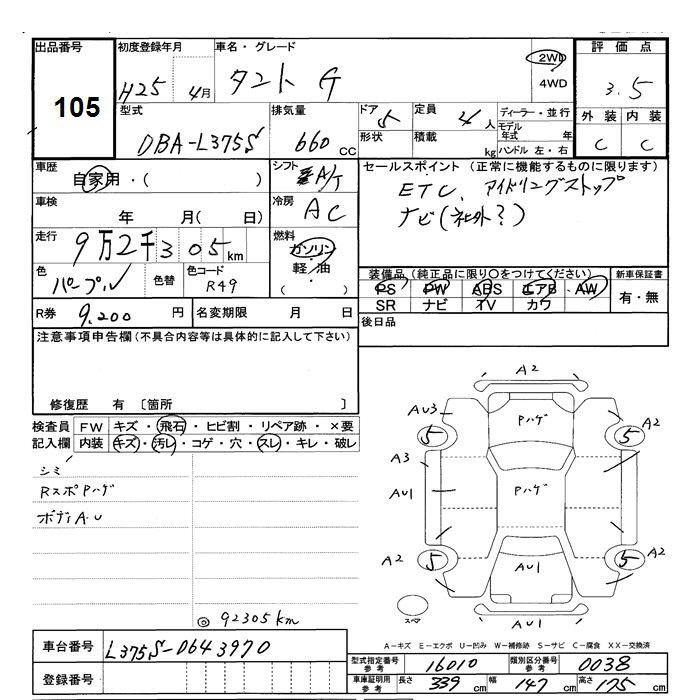 出品番号
105
初度登録年月
H25 4月
車名・グレード
タント G
2WD
4WD
評価点
3.5
外装 内装
C C
型式
DBA-L375S
排気量
660 CC
ドア 5
形状
定員 4 人
積載 kg
ディーラー・並行
モデル年式 年
ハンドル 左・右
車歴
自家用・( )
シフト
A/T
車検
年 月( 日)
冷房
AC
走行
9万2千305km
燃料
ガソリン
・
軽・油
( )
色
パープル
色替
色コード
R49
セールスポイント (正常に機能するものに限ります)
ETC、アイドリングストップ
ナビ(社外?)
装備品(純正品に限り〇をつけてください)
PS PW ABS エアB AW
SR ナビ TV カワ
新車保証書
有・無
R券 9,200 円
名変期限 月 日
後日品
注意事項申告欄(不具合内容等は具体的に記入して下さい)
修復歴 有 〔箇所 〕
検査員
記入欄
FW キズ・飛石・ヒビ割・リペア跡・×要
内装 キズ・汚レ・コゲ・穴・スレ・キレ・破レ
シミ
RスポPハゲ
ボディA.U
◎92305km
A2
AU3
A2
Pハゲ
5
5
A3
AU1
Pハゲ
A2
5
5
A2
AU1
AU1
スペア
A-キズ E-エクボ U-凹み W-補修跡 S-サビ C-腐食 XX-交換済
車台番号 L375S-0643970
登録番号
型式指定番号参考 16010
類別区分番号参考 0038
車庫証明用参考 長さ 339 cm 幅 147 cm 高さ 175 cm